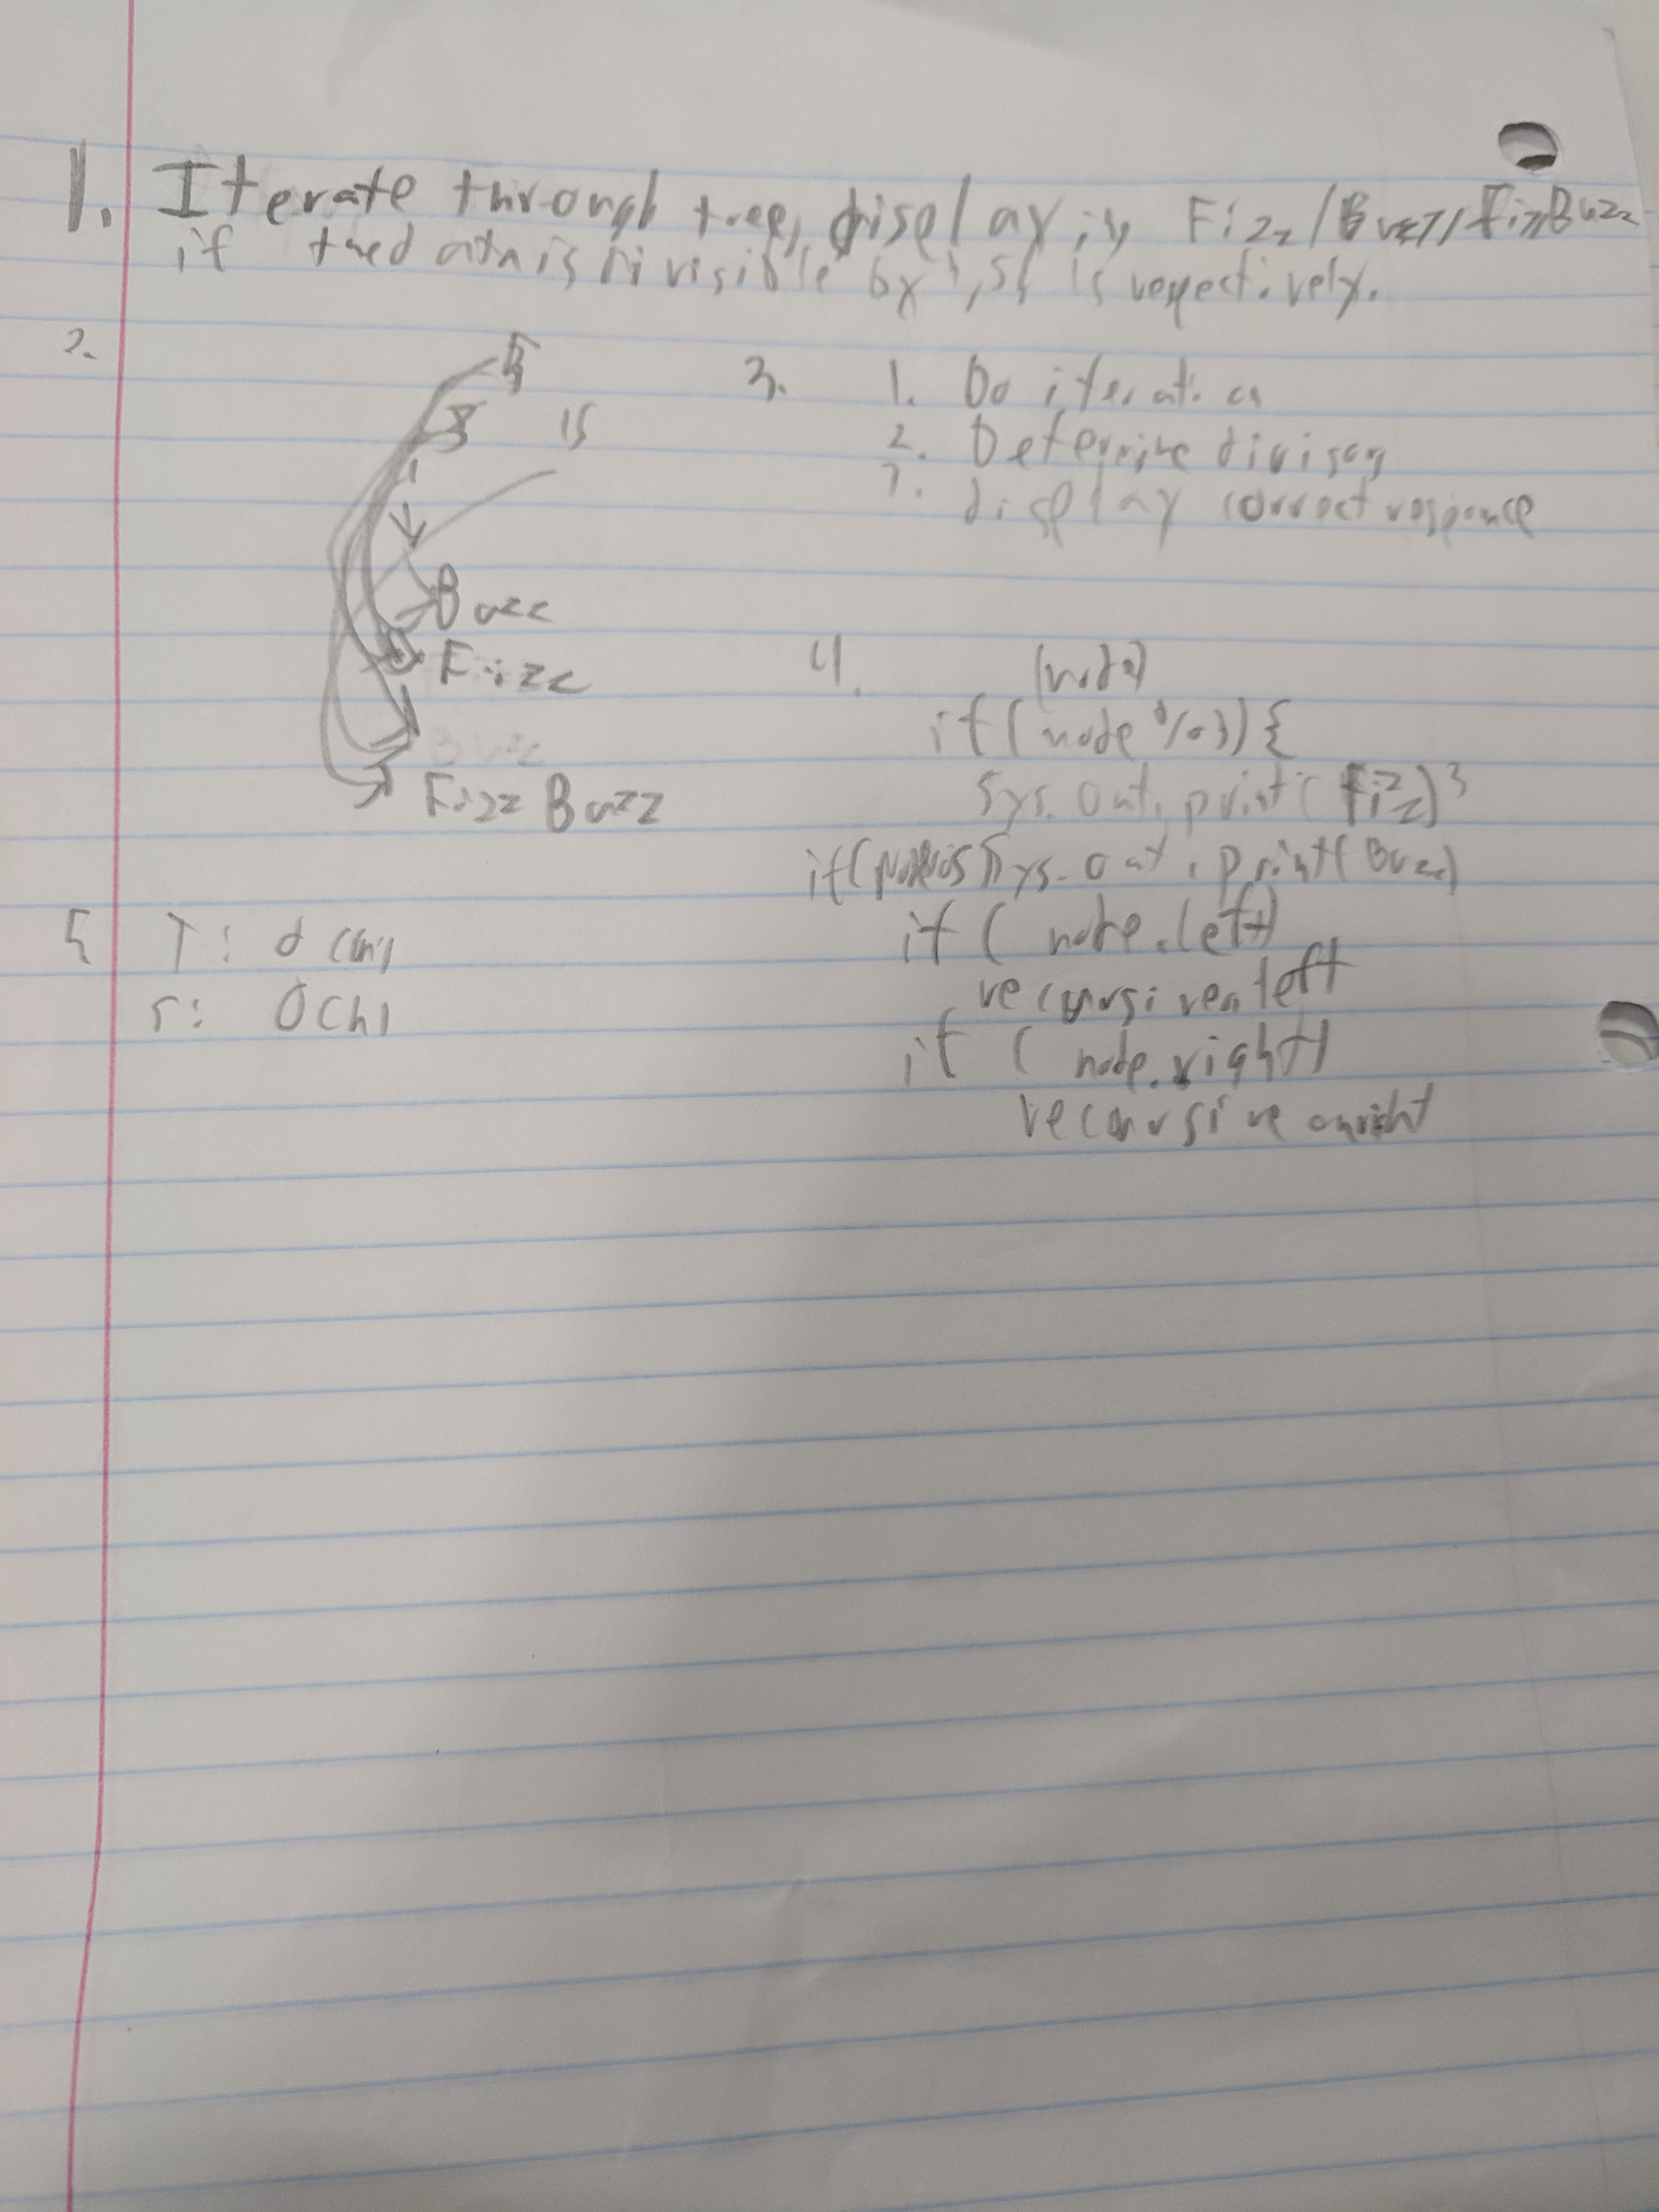 1. Iterate through tree, displaying Fizz/Buzz/FizzBuzz
if the data is divisible by 3, 5, 15 respectively.
2.
5
3 15
1
Buzz
Fizz
Buzz
FizzBuzz
3. 1. Do iteration
2. Determine divisors
3. display correct response
4. (node)
if (node % 3) {
Sys.out.print(Fizz) }
if(node%5) Sys.out.print(Buzz)
if (node.left)
recursive on left
if (node.right)
recursive on right
5 T: O(n)
S: O(h)